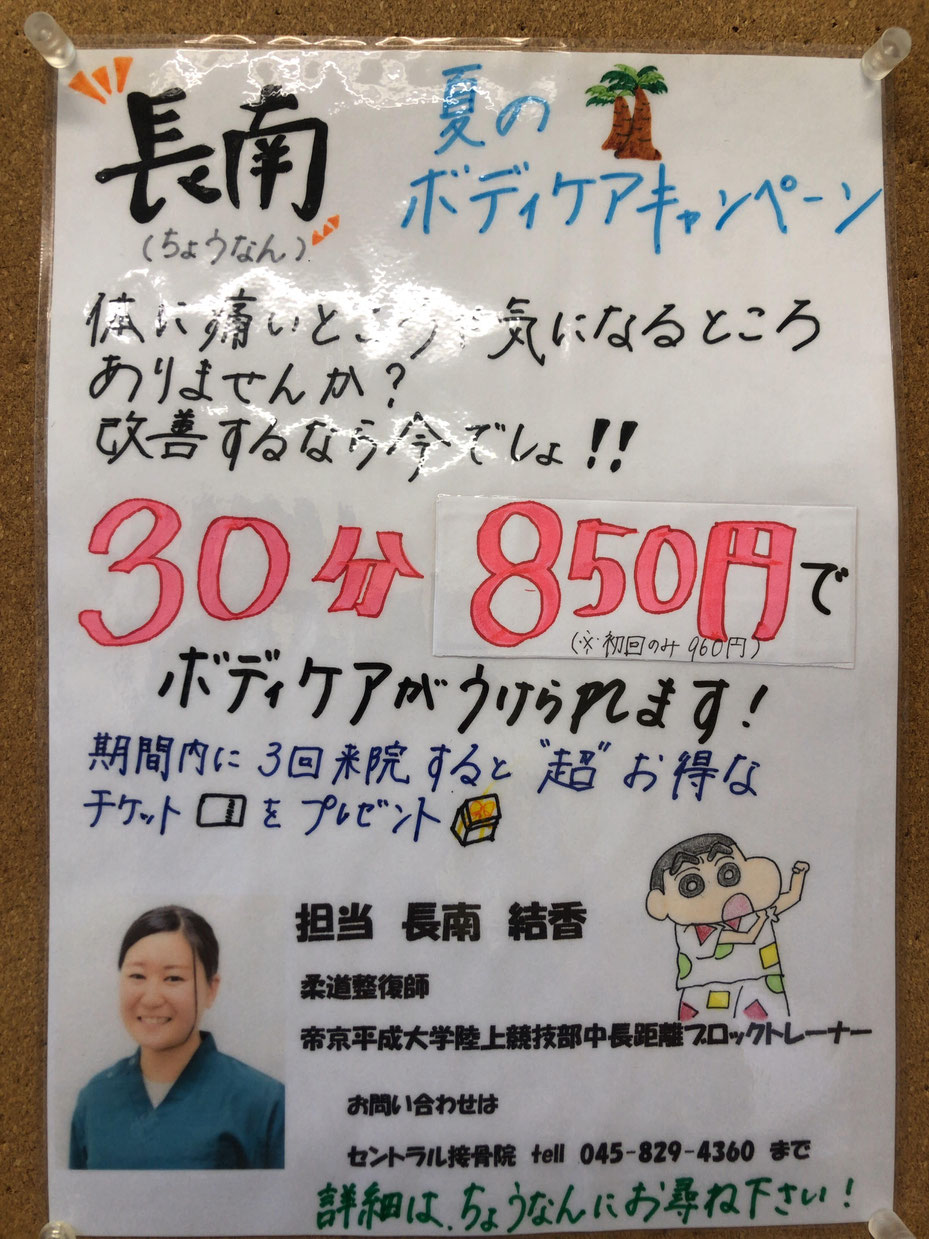 長南
(ちょうなん)
夏の
ボディケアキャンペーン
体に痛いところや気になるところ
ありませんか?
改善するなら今でしょ!!
30分 850円で
(※初回のみ960円)
ボディケアがうけられます!
期間内に3回来院すると"超"お得な
チケットをプレゼント
担当 長南 結香
柔道整復師
帝京平成大学陸上競技部中長距離ブロックトレーナー
お問い合わせは
セントラル接骨院 tell 045-829-4360 まで
詳細は、ちょうなんにお尋ね下さい!